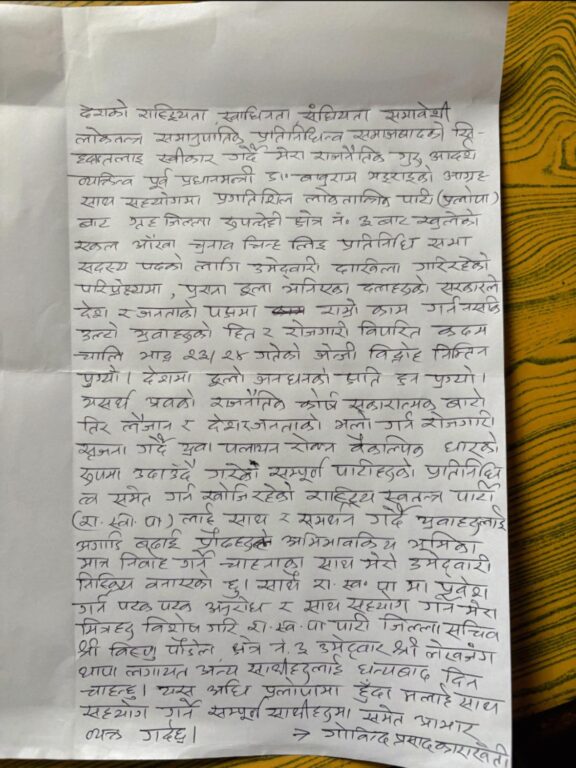 देशको राष्ट्रियता स्वाधिनता, संघियता समावेशी
लोकतन्त्र समानुपातिक प्रतिनिधित्व समाजवादको सि-
द्धान्तलाई स्वीकार गर्दै मेरा राजनैतिक गुरु आदर्श
व्यक्तित्व पूर्व प्रधानमन्त्री डा. बाबुराम भट्टराईको आग्रह
साथ सहयोगमा प्रगतिशिल लोकतान्त्रिक पार्टी (प्रलोपा)
बाट गृह जिल्ला रुपन्देही क्षेत्र नं. ३ बाट खुलेको
एकल आँखा चुनाव चिन्ह लिई प्रतिनिधि सभा
सदस्य पदको लागि उमेद्वारी दाखिला गरिरहेको
परिप्रेक्ष्यमा, पुराना ठूला भनिएका दलहरुको सरकारले
देश र जनताको पक्षमा राम्रो काम गर्न नसकि
उल्टो युवाहरुको हित र रोजगारी विपरित कदम
चालि भाद्र २३/२४ गतेको जेन्जी विद्रोह निम्तिन
पुग्यो। देशमा ठूलो जनधनको क्षति हुन पुग्यो।
यसर्थ अबको राजनैतिक कोर्ष सकारात्मक बाटो
तिर लैजान र देश र जनताको भलो गर्न रोजगारी
सृजना गर्दै युवा पलायन रोक्न वैकल्पिक धारको
रुपमा उठाउँदै गरेको सम्पूर्ण पार्टीहरुको प्रतिनिधि
त्व समेत गर्न खोजिरहेको राष्ट्रिय स्वतन्त्र पार्टी
(रा. स्वा. पा) लाई साथ र समर्थन गर्दै युवाहरुलाई
अगाडि बढाई प्रौढहरुले अभिभावकिय भूमिका
मात्र निर्वाह गर्ने चाहनाका साथ मेरो उमेदवारी
निष्क्रिय बनाएको छु। साथै रा. स्व. पा मा प्रवेश
गर्न पटक पटक अनुरोध र साथ सहयोग गर्ने मेरा
मित्रहरु विशेष गरि रा. स्व. पा पार्टी जिल्ला सचिव
श्री विष्णु पौडेल क्षेत्र नं. ३ उमेद्वार श्री लेखजंग
थापा लगायत अन्य साथीहरुलाई धन्यबाद दिन
चाहन्छु। यस अघि प्रलोपामा हुँदा मलाई साथ
सहयोग गर्ने सम्पूर्ण साथीहरुमा समेत आभार
व्यक्त गर्दछु। → गोविन्द प्रसाद